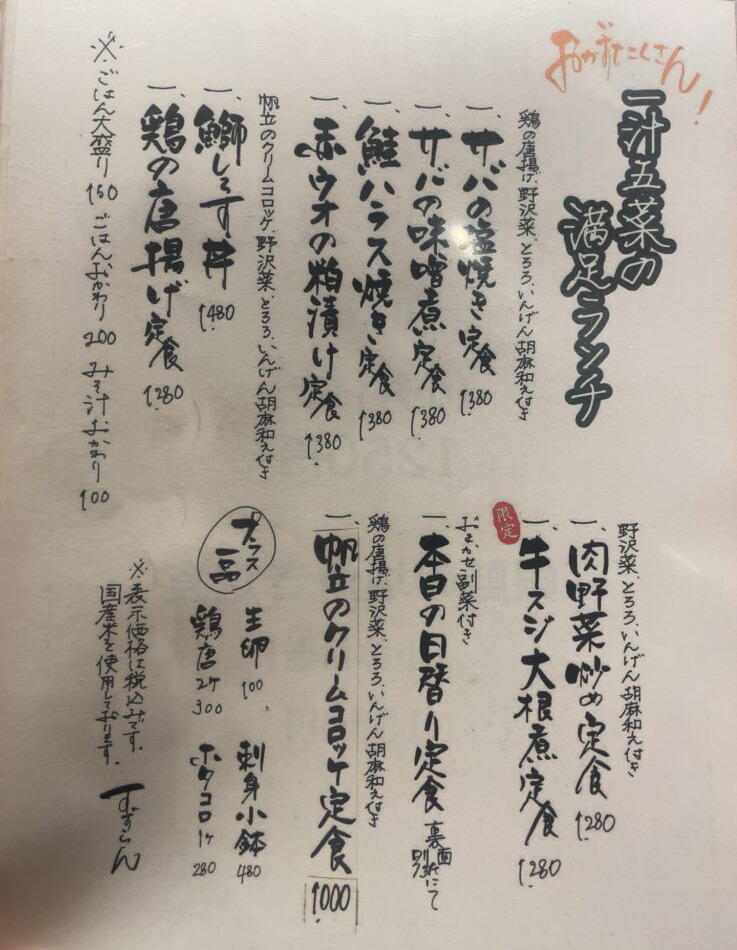 おかずたくさん！
一汁五菜の
満足ランチ
鶏の唐揚げ、野沢菜、とろろ、いんげん胡麻和え付き
一、サバの塩焼き定食 1,380
一、サバの味噌煮定食 1,380
一、鮭ハラス焼き定食 1,380
一、赤ウオの粕漬け定食 1,380
帆立のクリームコロッケ、野沢菜、とろろ、いんげん胡麻和え付き
一、鰤しらす丼 1,480
一、鶏の唐揚げ定食 1,280
※ごはん大盛り 150 ごはんおかわり 200 みそ汁おかわり 100
野沢菜、とろろ、いんげん胡麻和え付き
一、肉野菜炒め定食 1,280
限定
一、牛スジ大根煮定食 1,280
おまかせ副菜付き
一、本日の日替り定食 裏面
別紙にて
鶏の唐揚げ、野沢菜、とろろ、いんげん胡麻和え付き
一、帆立のクリームコロッケ定食 1,000
プラス
一品
生卵 100
刺身小鉢 480
鶏唐2ケ 300
ホタコロ1ケ 280
※表示価格は税込みです。
国産米を使用しております。
すずらん